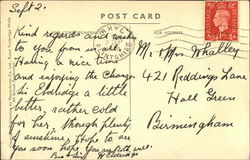 Sept. 2.
POST CARD
Kind regards and
to you from us all.
Having a nice time
and enjoying the change.
Eldridge a little
better, rather cold
for her, though plenty
of sunshine, hope to see
you soon, hope you are well.
W. Eldridge
FOR ADDRESS
Mr & Mrs Whalley
421 Reddings Lane
Hall Green
Birmingham